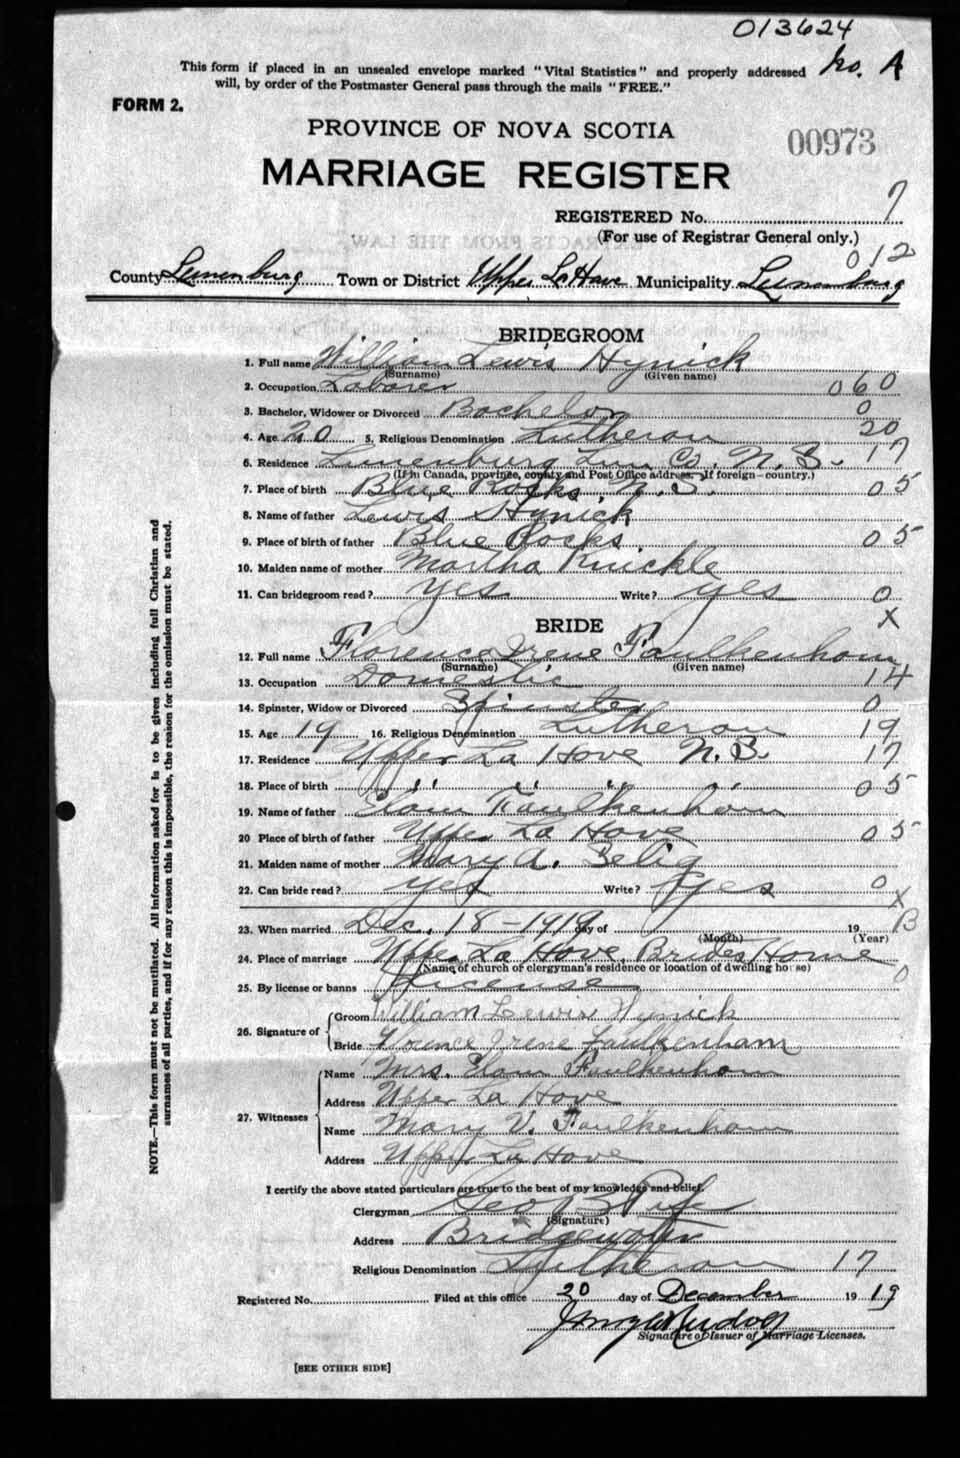 013624
This form if placed in an unsealed envelope marked "Vital Statistics" and properly addressed No. A
will, by order of the Postmaster General pass through the mails "FREE."
FORM 2.
PROVINCE OF NOVA SCOTIA
00973
MARRIAGE REGISTER
REGISTERED No. 7
(For use of Registrar General only.)
012
County Lunenburg Town or District Upper LaHave Municipality Lunenburg
BRIDEGROOM
1. Full name William Lewis Hynick
(Surname) (Given name)
2. Occupation Laborer 060
3. Bachelor, Widower or Divorced Bachelor 0
4. Age 20 5. Religious Denomination Lutheran 20
6. Residence Lunenburg Lun. Co. N.S. 17
(If in Canada, province, county and Post Office address. If foreign—country.)
7. Place of birth Blue Rocks, N.S. 05
8. Name of father Lewis Hynick
9. Place of birth of father Blue Rocks 05
10. Maiden name of mother Martha Knickle
11. Can bridegroom read? Yes Write? yes 0
X
BRIDE
12. Full name Florence Irene Faulkenham
(Surname) (Given name)
13. Occupation Domestic 14
14. Spinster, Widow or Divorced Spinster 0
15. Age 19 16. Religious Denomination Lutheran 19
17. Residence Upper La Have N.S. 17
18. Place of birth " " " " 05
19. Name of father Elam Faulkenham
20 Place of birth of father Upper La Have 05
21. Maiden name of mother Mary A. Zelig
22. Can bride read? yes Write? yes 0
X
23. When married Dec. 18-1919 day of 19 B
(Month) (Year)
24. Place of marriage Upper La Have, Brides Home
(Name of church or clergyman's residence or location of dwelling house) 0
25. By license or banns License
26. Signature of
Groom William Lewis Hynick
Bride Flounce Irene Faulkenham
27. Witnesses
Name Mrs. Elam Faulkenham
Address Upper La Have
Name Mary V. Faulkenham
Address Upper La Have
I certify the above stated particulars are true to the best of my knowledge and belief.
Clergyman Geo
(Signature)
Address Bridgewater
Religious Denomination Lutheran 17
Registered No. Filed at this office 20 day of December 19 19
Signature of Issuer of Marriage Licenses.
[SEE OTHER SIDE]
NOTE.—This form must not be mutilated. All information asked for is to be given including full Christian and
surnames of all parties, and if for any reason this is impossible, the reason for the omission must be stated.